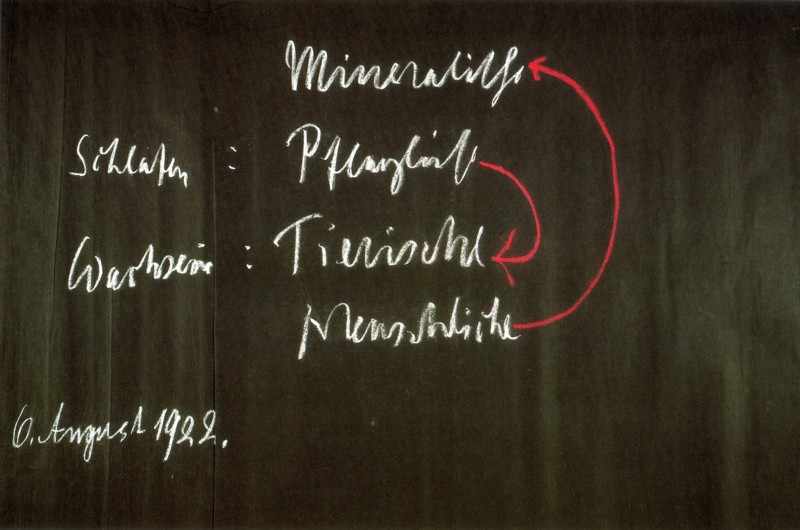 Mineralische
Schlafen : Pflanzliche
Wachsein : Tierische
Menschliche
6. August 1922.